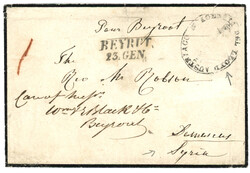 Pour Beyrout
BEYRUT
25. GEN.
The
Rev Mr Robson
Care of Messrs
Wm Black & Co
Beyrout
Damascus
Syria